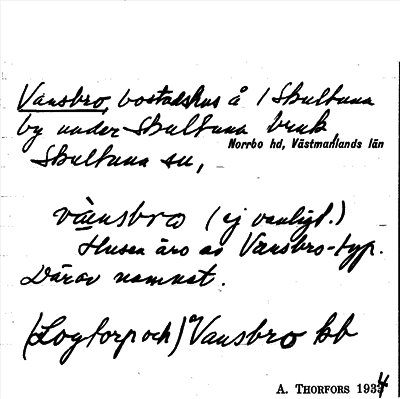 Vansbro, bostadshus å 1 Skultuna
by under Skultuna bruk
Norrbo hd, Västmanlands län
Skultuna sn,
vànsbro (ej vanligt.)
Husen äro av Vansbro-typ.
Därav namnet.
(Logtorp och) Vansbro bb
A. THORFORS 1934